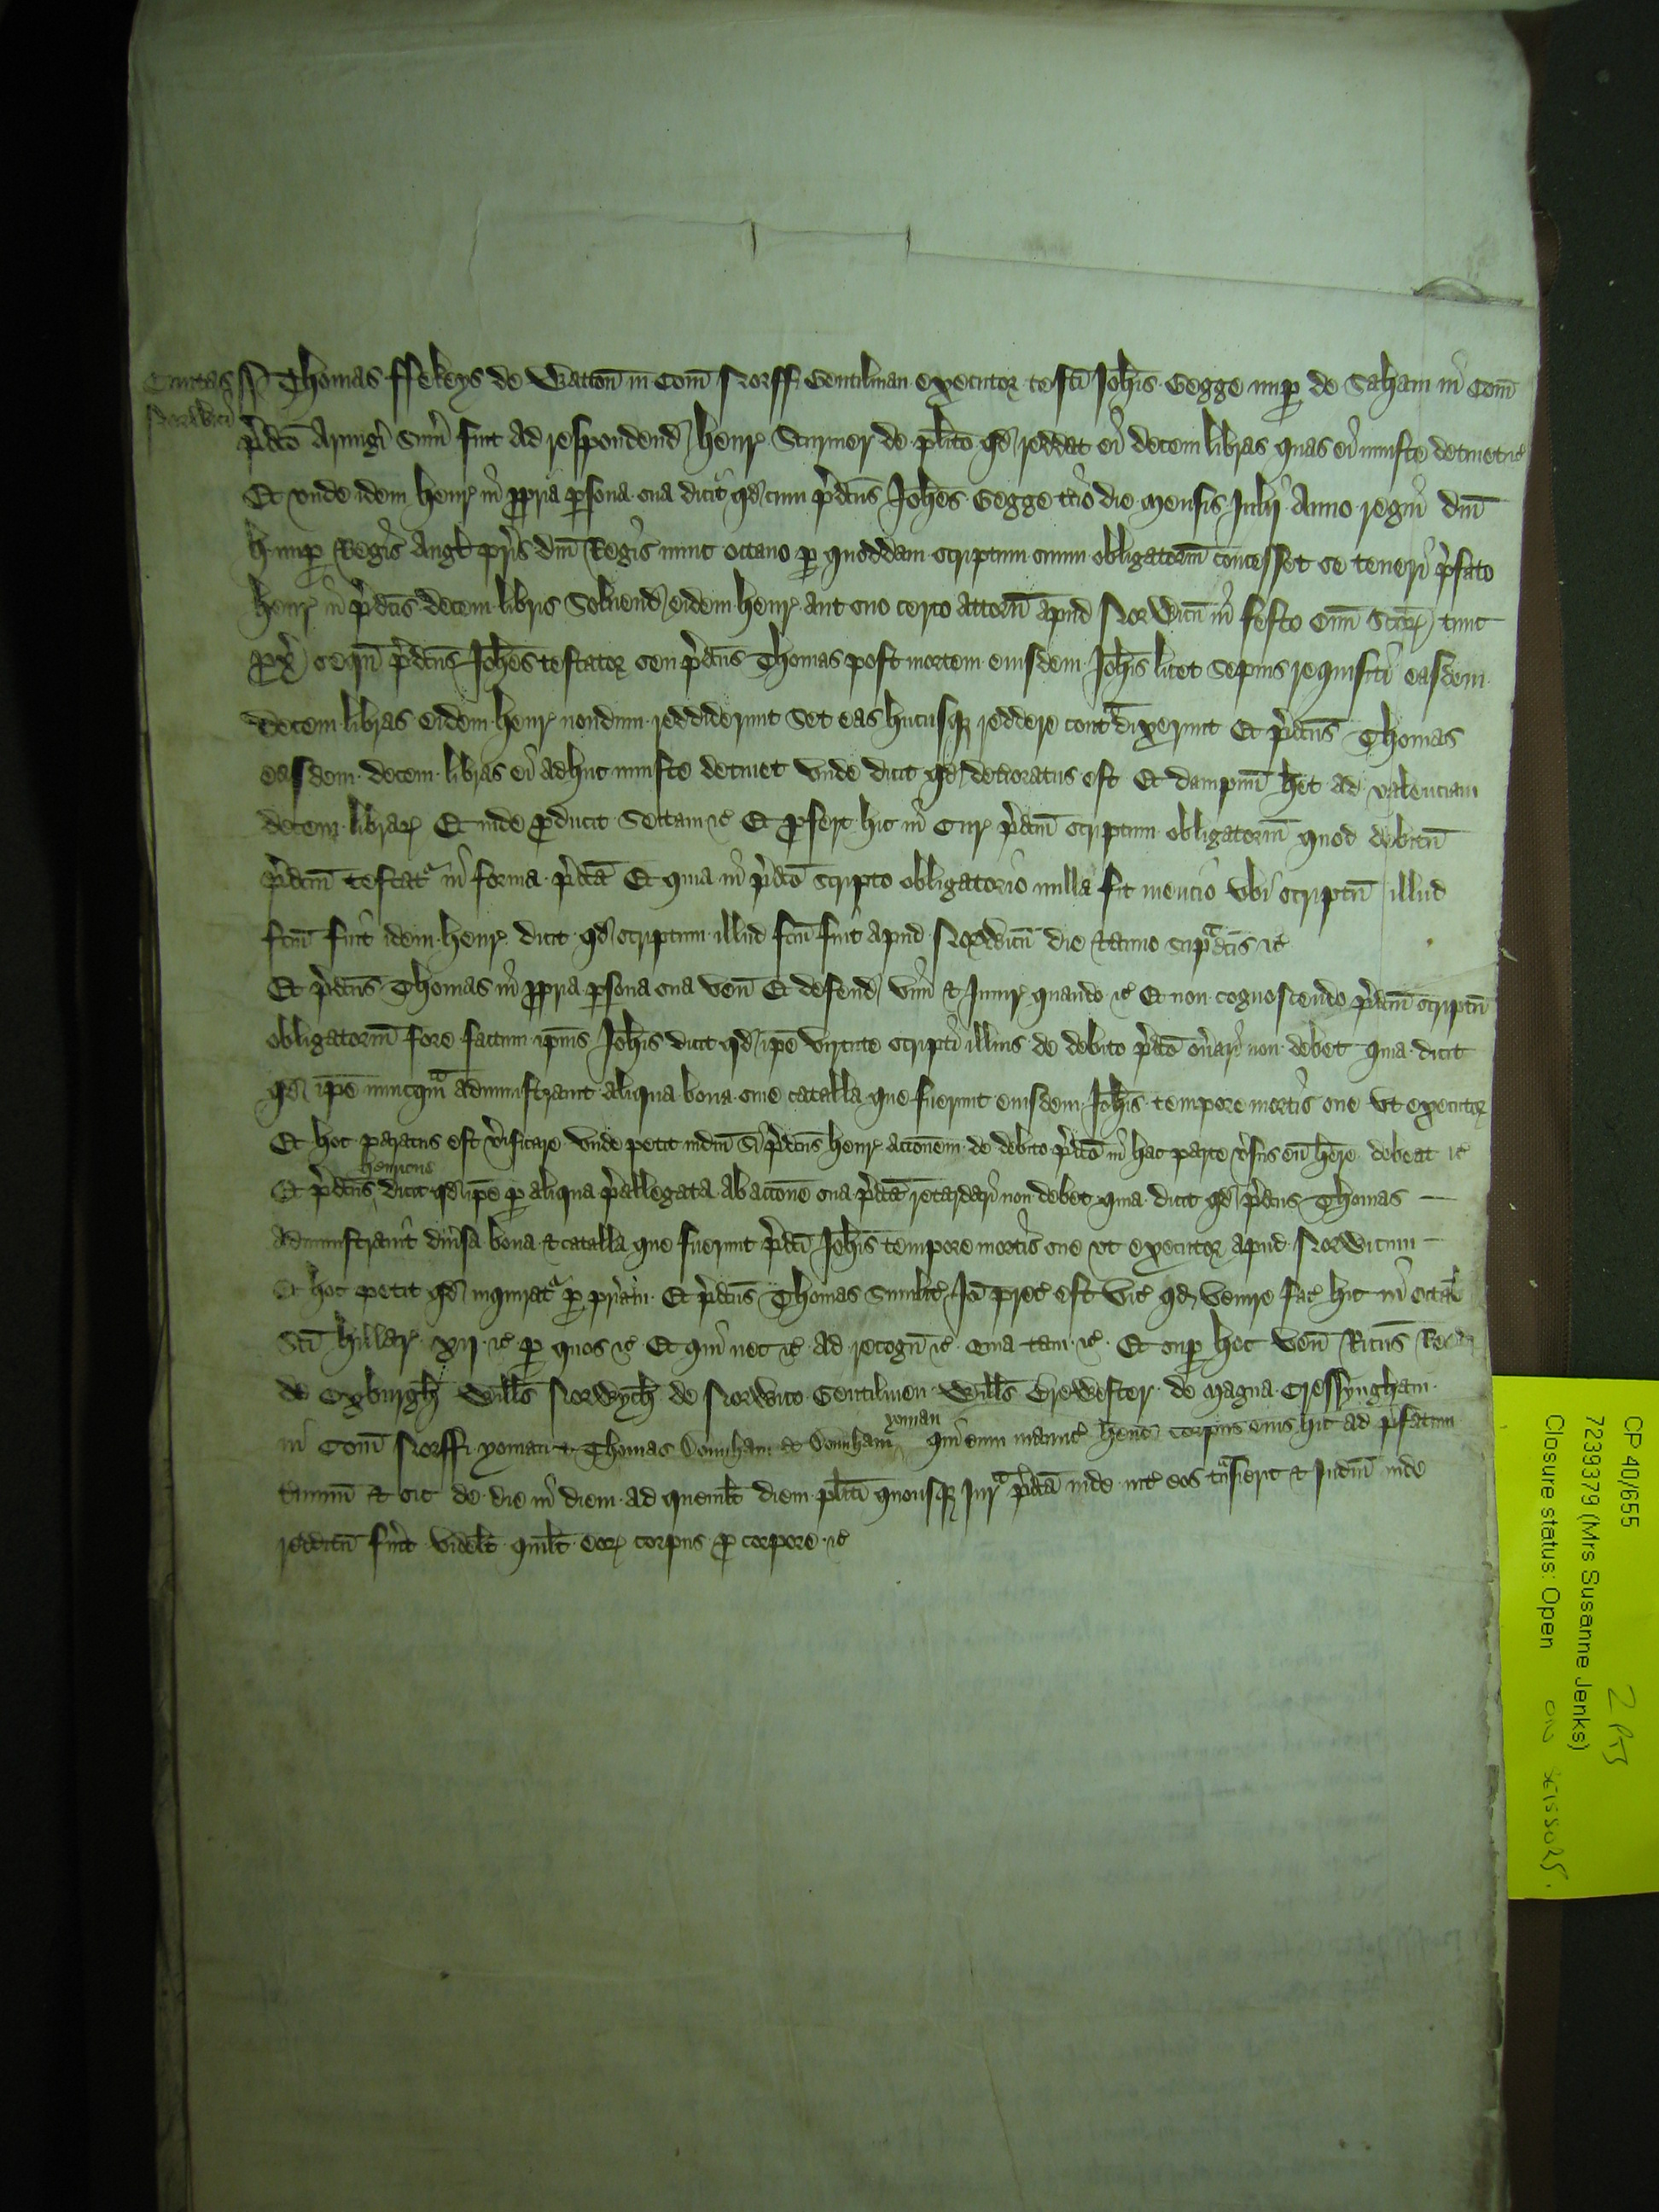 Civitas
Norwici
Thomas ffekeys de Watton in Com Norff Gentilman executor testi Johis Gegge nup de Saham in Com
pdco Armigi sum fuit ad respondend Henr Sturmer de plito qd reddat ei decem libras quas ei iniuste detinet &c
Et unde idem Henr in ppria psona sua dicit qd cum pdcus Johes Gegge tcio die mensis Julij Anno regni dni
H nup Regis Angl pris dni Regis nunc octavo p quoddam scriptum suum obligatorm concesset se teneri pfato
Henr in pdcis decem libris Solvend eidem Henr aut suo certo attorn apud Norwicu in festo Omi Scor tunc
px sequ pdcus Johes testator seu pdcus Thomas post mortem eiusdem Johis licet sepius requisiti easdem
decem libras eidem Henr nondum reddiderunt Set eas hucusq reddere contadixerunt Et pdcus Thomas
easdem decem libras ei adhuc iniuste detinet unde dicit qd deterioratus est Et dampnu het ad valenciam
decem librar Et inde pducit Sectam &c Et pfert hic in Cur pdcm scriptum obligatorm quod debitu
pdcm testat in forma pdca Et quia in pdco scripto obligatorio nulla fit mencio ubi scriptu illud
fcm fuit idem Henr dicit qd scriptum illud fcm fuit apud Norwicu die & anno supadcis &c
Et pdcus Thomas in ppria psona sua ven Et defend vim & Iniur quando &c Et non cognoscendo pdcm scriptu
obligatorm fore factum ipius Johis dicit qd ipe virtute scripti illius de debito pdco onari non debet quia dicit
qd ipe nuncqam administravit aliqua bona sive catalla que fuerunt eiusdem Johis tempore mortis sue ut executor
Et hoc paratus est vificare unde petit iudm si pdcus Henr accionem de debito pdco in hac parte vsus eu here debeat &c
Et pdcus Henricus dicit qd ipe p aliqua pallegata ab accione sua pdca retardari non debet quia dicit qd pdcus Thomas
Administravit divsa bona & catalla que fuerunt pdci Johis tempore mortis sue ut executor apud Norwicum
Et hoc petit qd inquirat p priam Et pdcus Thomas Similit Io prec est vic qd venire fac hic in octab
Sci Hillar xij &c p quos &c Et qui nec &c ad recogn &c Quia tam &c Et sup hoc ven Ricus
de Oxburgh Wills Norwych de Norwico Gentilmen Wills Brewester de Magna Cressyngham
in Com Norff yoman & Thomas Dounham de Dounham yoman qui eum manuc hend corpus eius hic ad pfatum
tminu & sic de die in diem ad quemlt diem pliti quousq Iura pdca inde int eos tansierit & Iudm inde
redditu fuit videlt quilt eor corpus p corpore &c
CP 40/655
7239379 (Mrs Susanne Jenks)
Closure status: Open
2 PTS
ON SCISSORS.